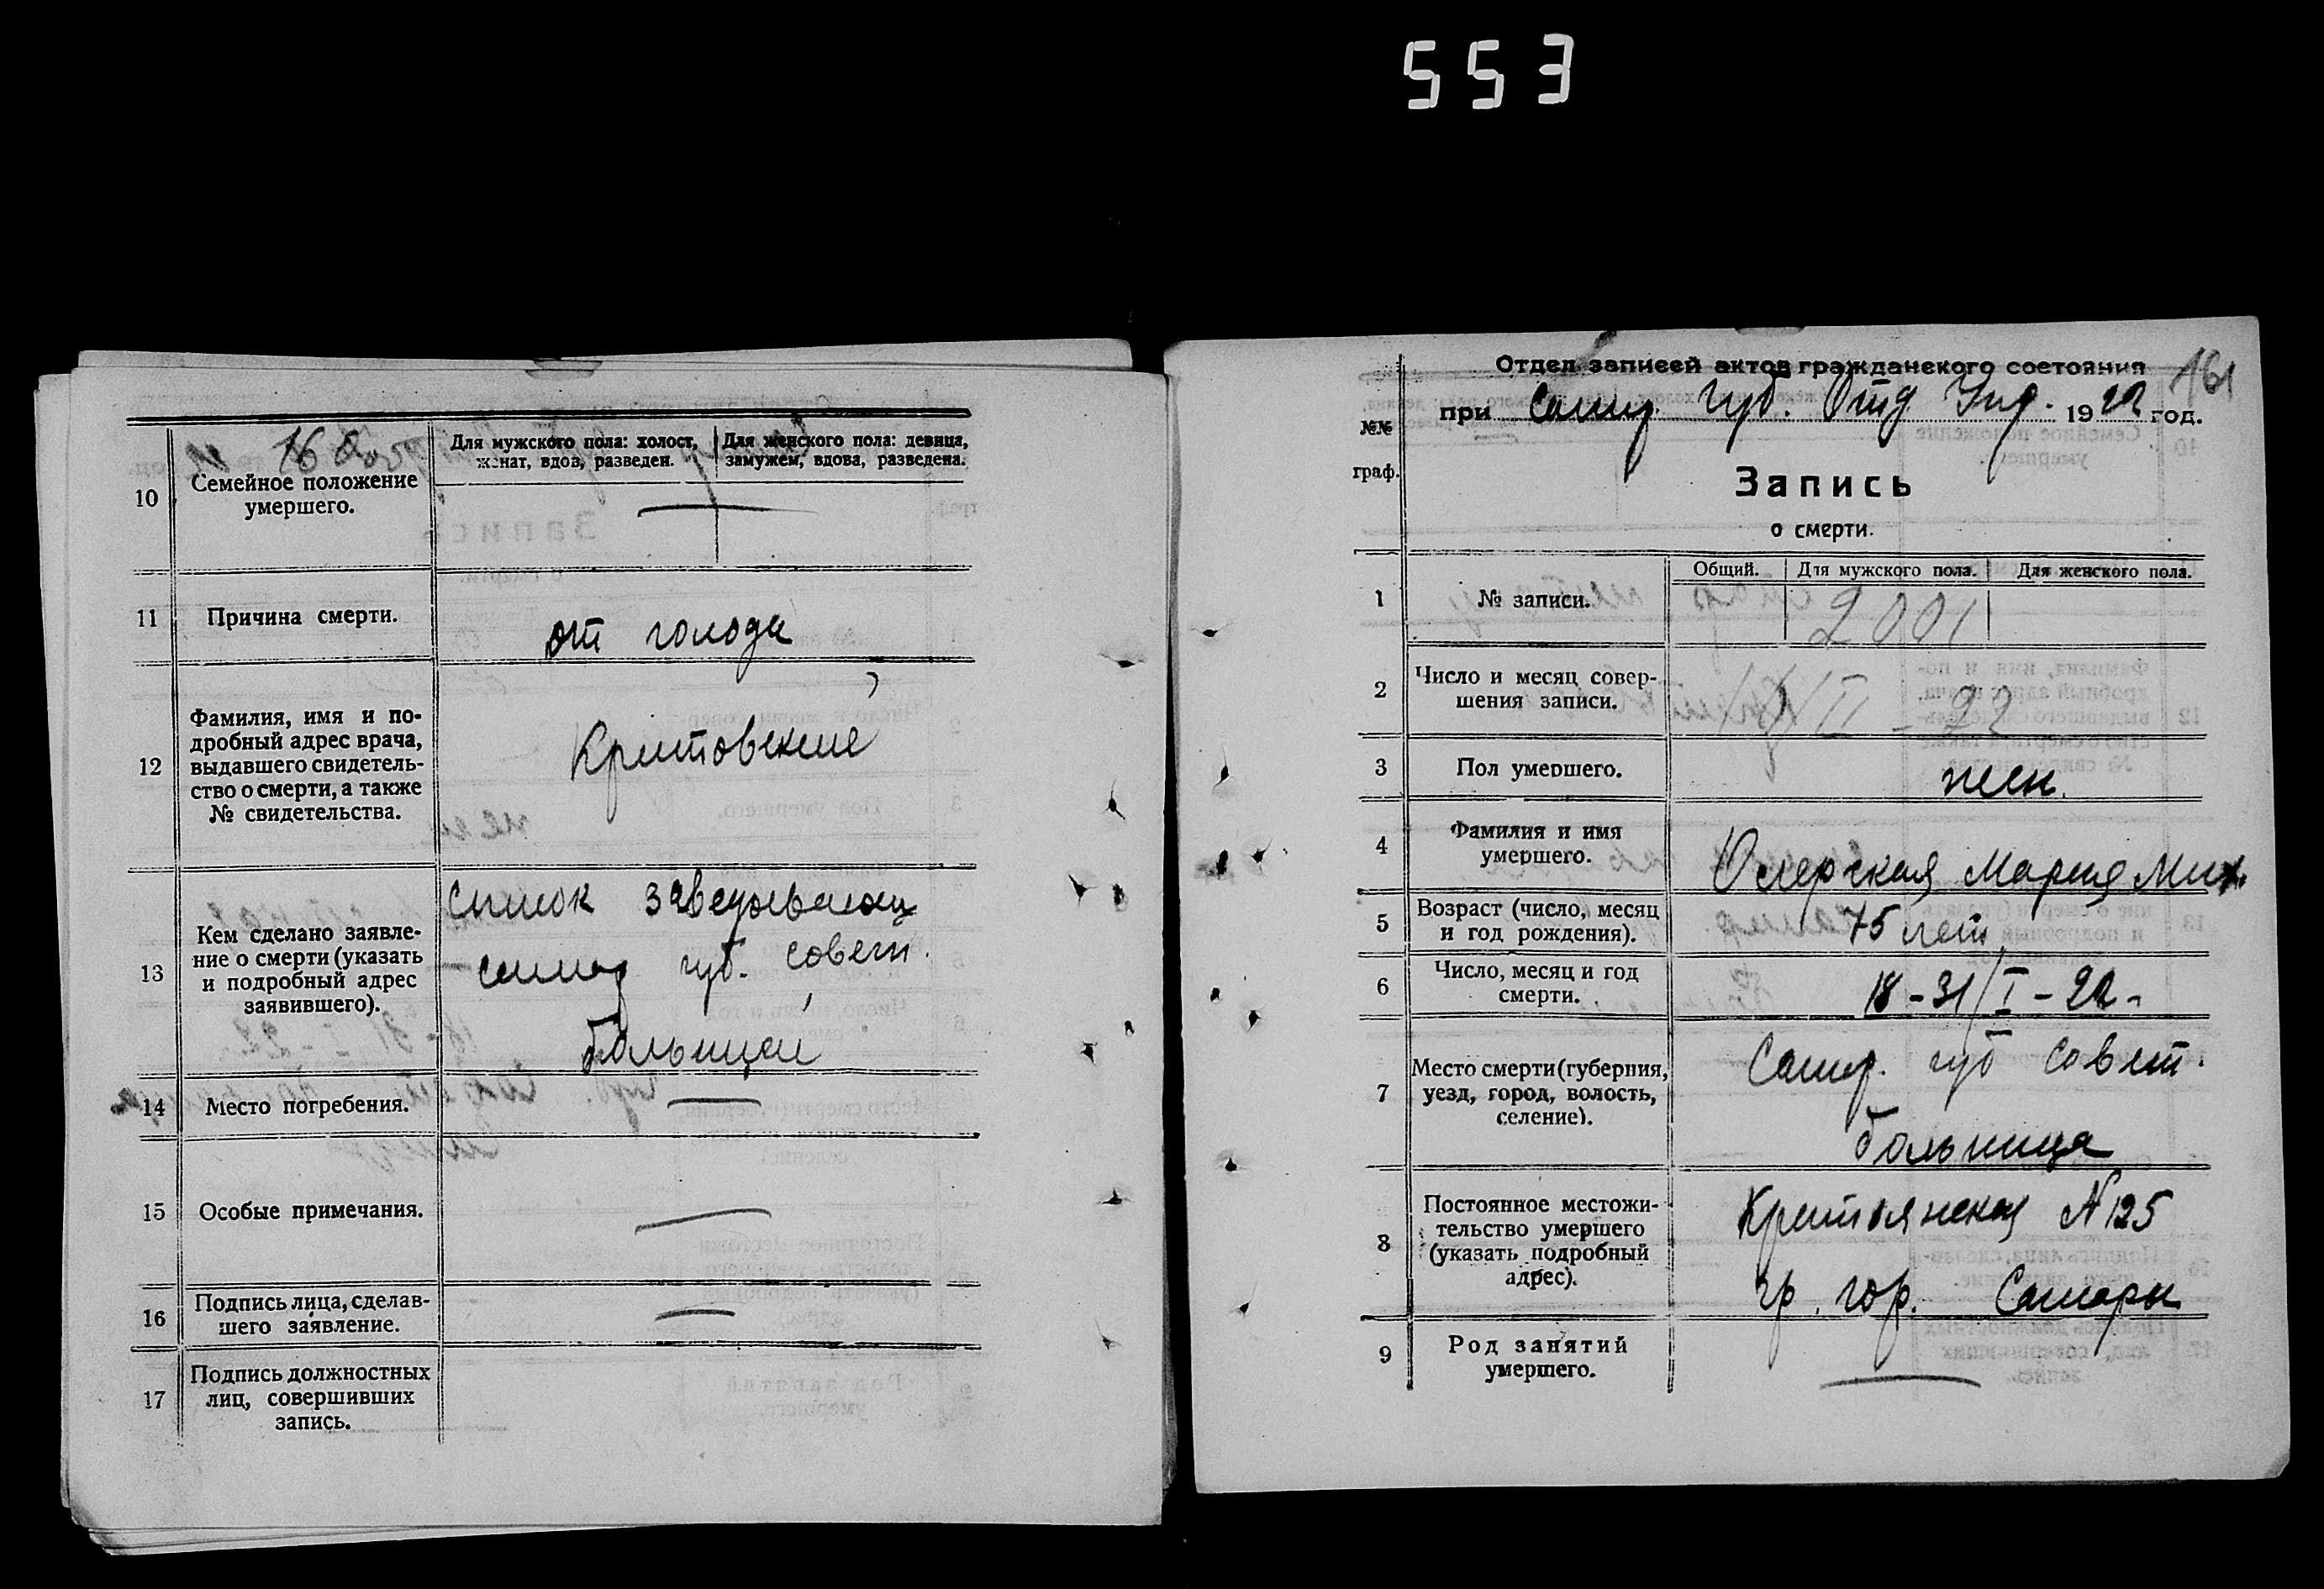 553
160об
10
Семейное положение
умершего.
Для мужского пола: холост,
женат, вдов, разведен.
Для женского пола: девица,
замужем, вдова, разведена.
11
Причина смерти.
от голода
12
Фамилия, имя и по-
дробный адрес врача,
выдавшего свидетель-
ство о смерти, а также
№ свидетельства.
13
Кем сделано заявле-
ние о смерти (указать
и подробный адрес
заявившего).
список заведывающ
самар губ. совет.
больницей
14
Место погребения.
15
Особые примечания.
16
Подпись лица, сделав-
шего заявление.
17
Подпись должностных
лиц, совершивших
запись.
161
Отдел записей актов гражданского состояния
при Самар. Губ. Отд. Упр. 1922 год.
№№
граф.
Запись
о смерти.
1
№ записи.
Общий.
Для мужского пола.
Для женского пола.
2001
2
Число и месяц совер-
шения записи.
II - 22
3
Пол умершего.
жен.
4
Фамилия и имя
умершего.
Мария Мих.
5
Возраст (число, месяц
и год рождения).
75 лет
6
Число, месяц и год
смерти.
18-31/I-22-
7
Место смерти (губерния,
уезд, город, волость,
селение).
Самар. губ совет.
больница
8
Постоянное местожи-
тельство умершего
(указать подробный
адрес).
Крестьянская № 125
гр. гор. Самары
9
Род занятий
умершего.